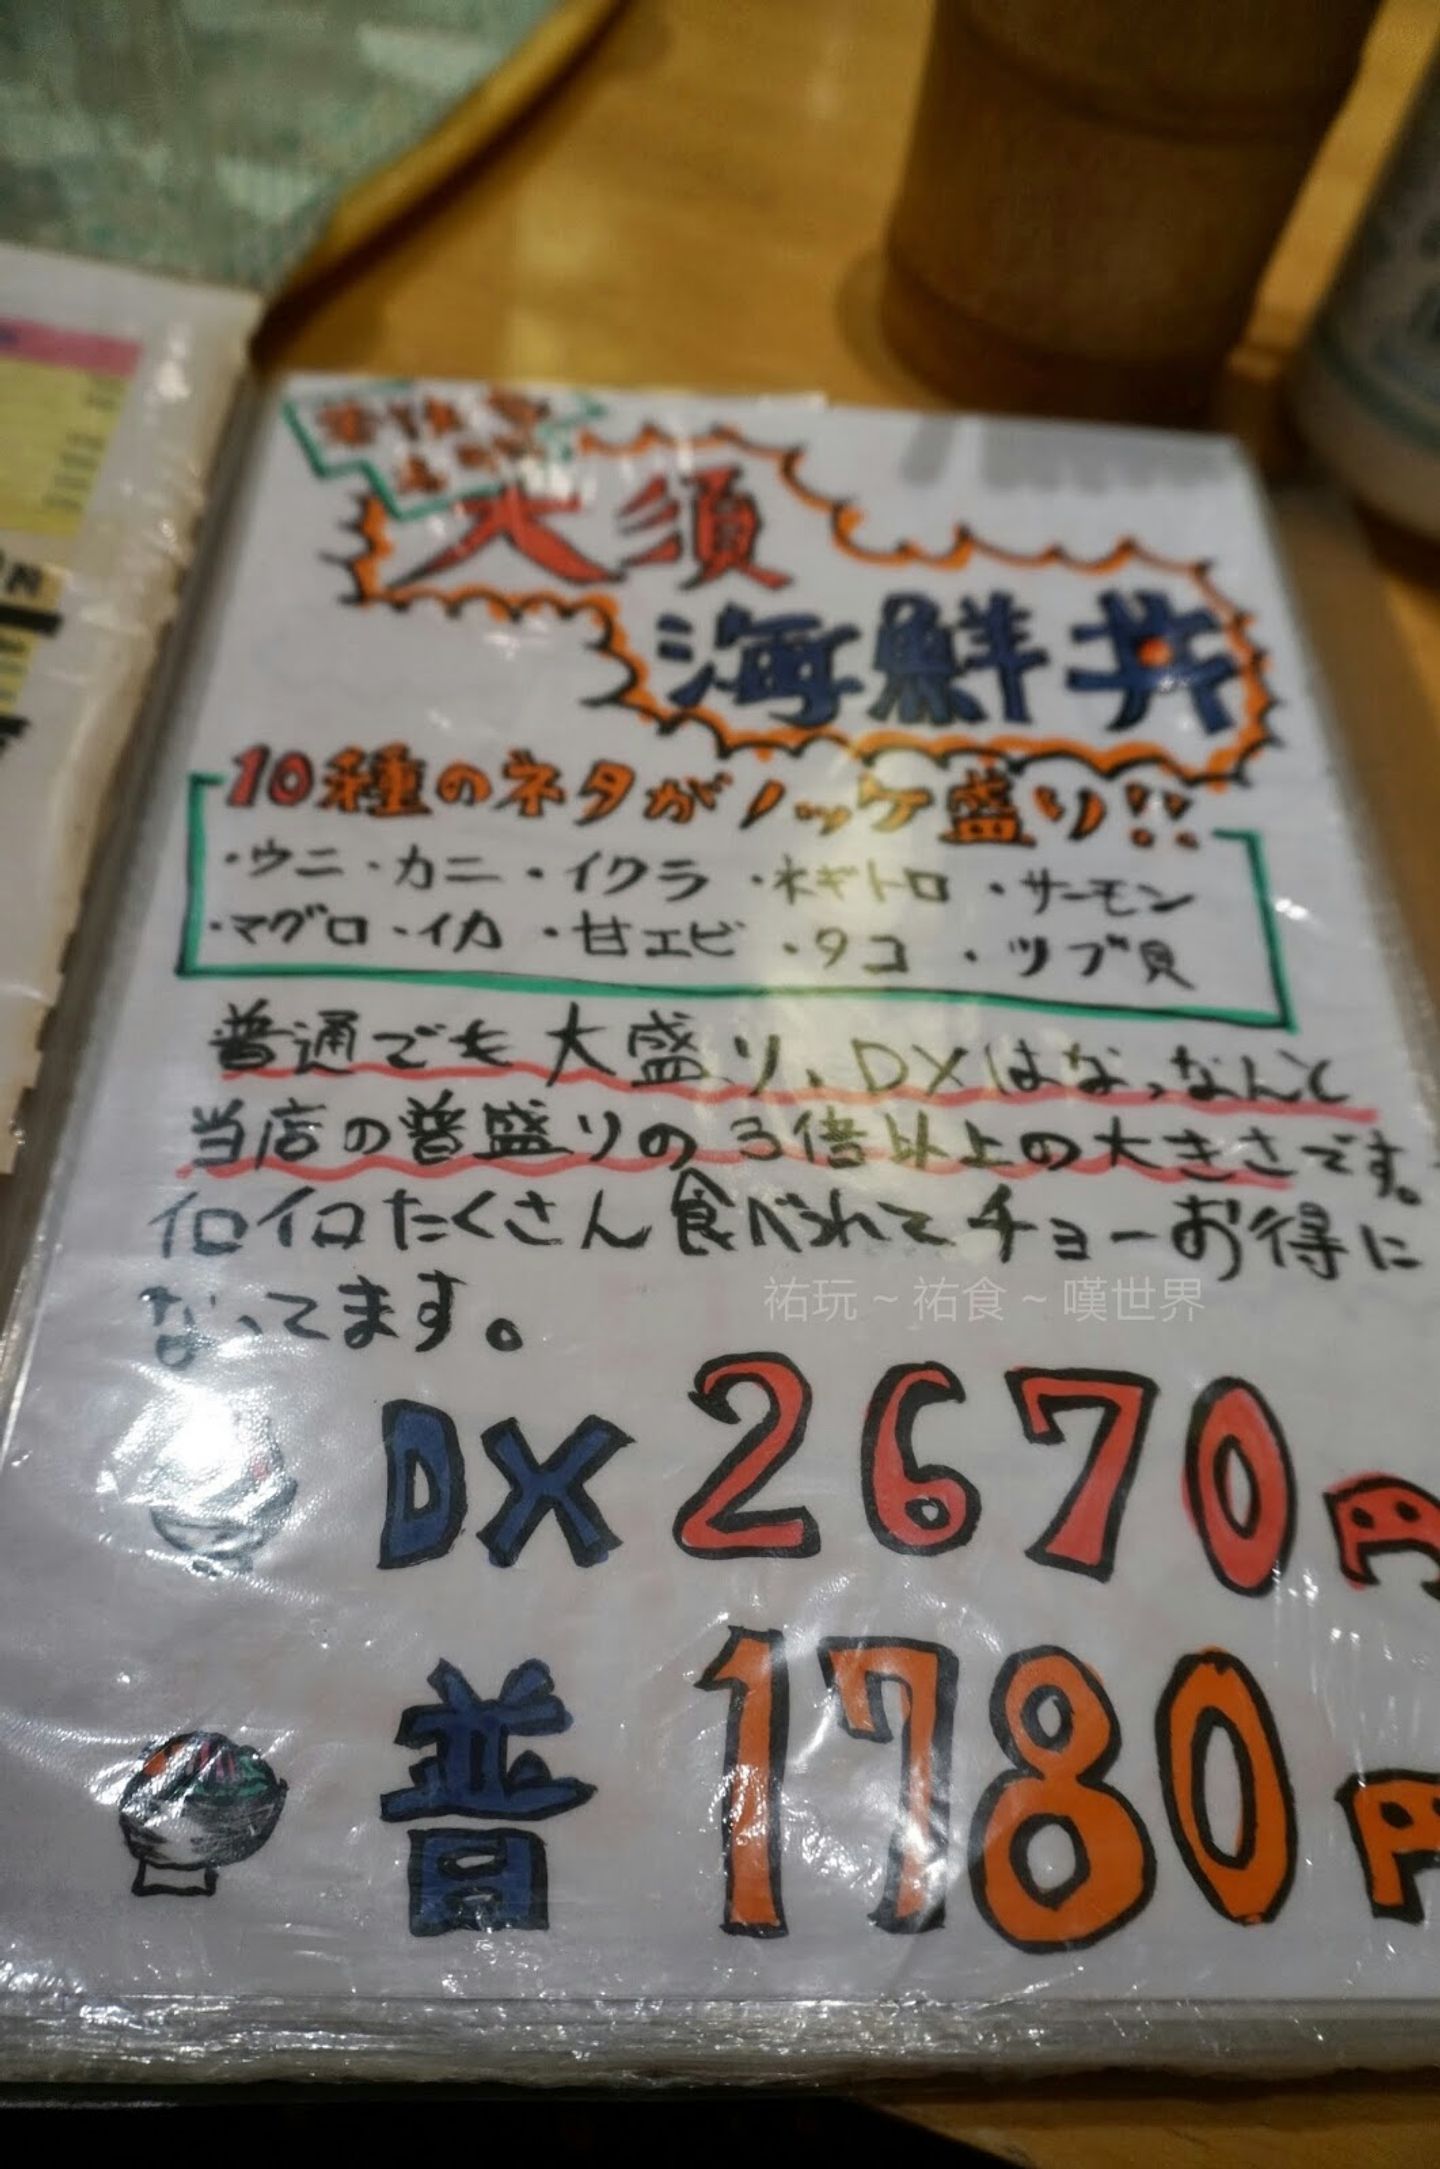 大須
海鮮丼
10種のネタがノッケ盛り!!
・ウニ・カニ・イクラ・ネギトロ・サーモン
・マグロ・イカ・甘エビ・タコ・ツブ貝
普通でも大盛り、DXはなっなんと
当店の普盛りの3倍以上の大きさです。
イロイロたくさん食べれてチョーお得に
なってます。
祐玩~祐食~嘆世界
DX 2670円
普 1780円